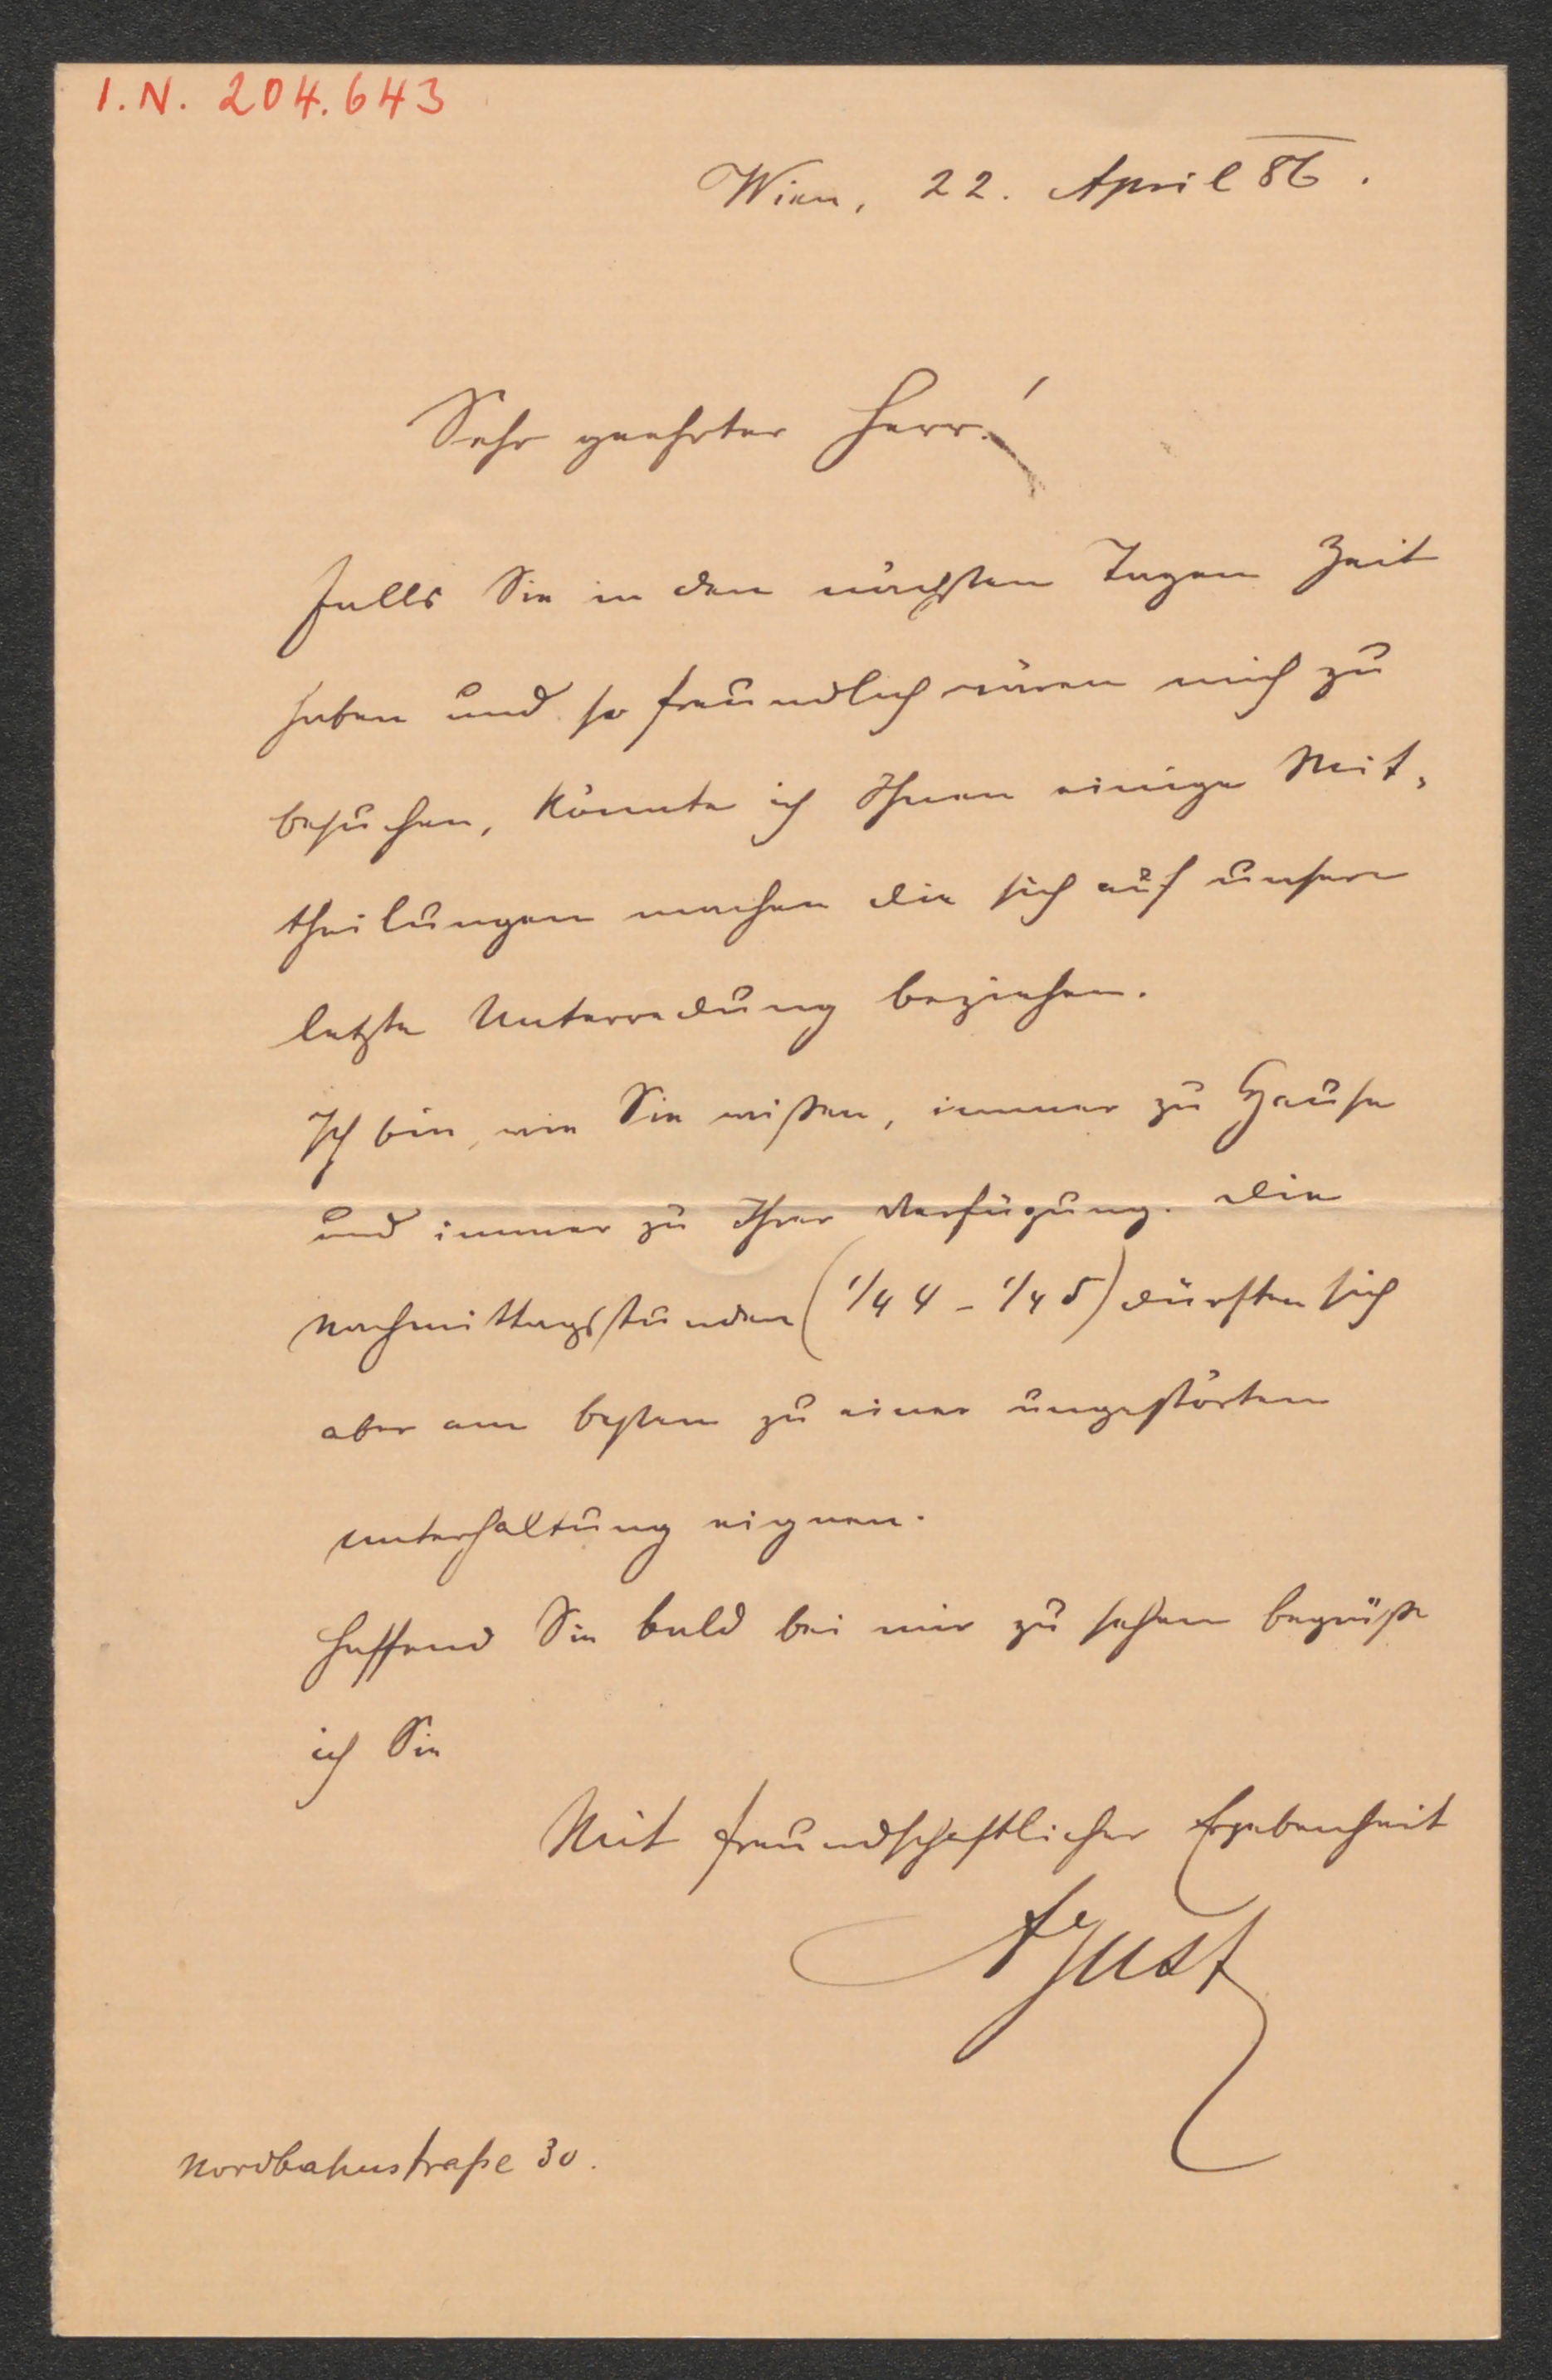 I.N. 204.643
Wien, 22. April 86.
Sehr geehrter Herr!
Falls Sie in den nächsten Tagen Zeit
haben und so freundlich wären mich zu
besuchen, könnte ich Ihnen einige Mit-
theilungen machen die sich auf unsere
letzte Unterredung beziehen.
Ich bin, wie Sie wißen, immer zu Hause
und immer zu Ihrer Verfügung. Die
Nachmittagsstunden (1/4 4 – 1/4 5) dürften sich
aber am besten zu einer ungestörten
Unterhaltung eignen.
Hoffend Sie bald bei mir zu sehen begrüße
ich Sie
Mit freundschaftlicher Ergebenheit
AJust
Nordbahnstraße 30.